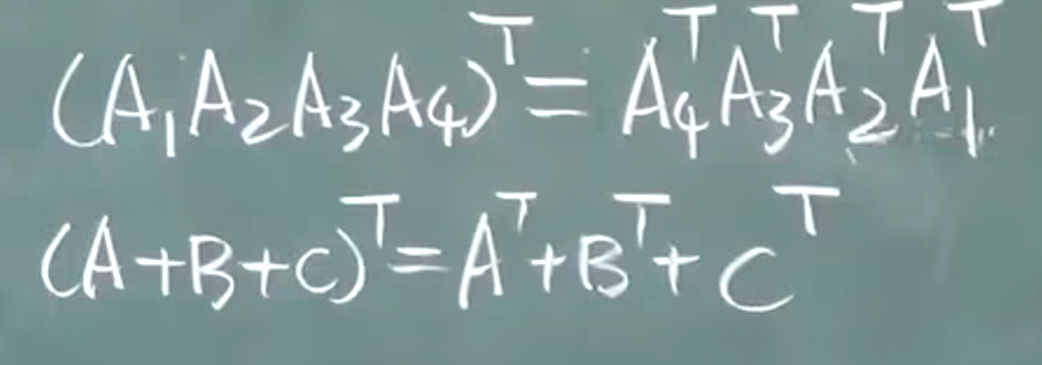 (A₁A₂A₃A₄)ᵀ = A₄ᵀA₃ᵀA₂ᵀA₁ᵀ
(A+B+C)ᵀ = Aᵀ+Bᵀ+Cᵀ